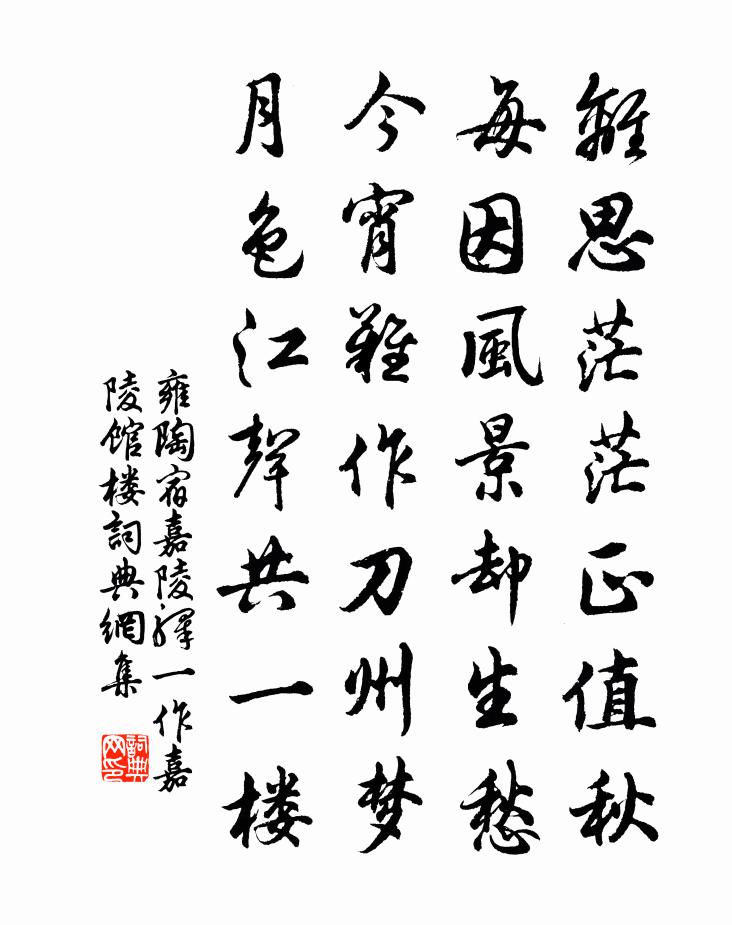 離思茫茫正值秋
每因風景却生愁
今宵難作刀州梦
月色江聲共一楼
雍陶宿嘉陵驛一作嘉
陵館楼詞典網集
詞典网印